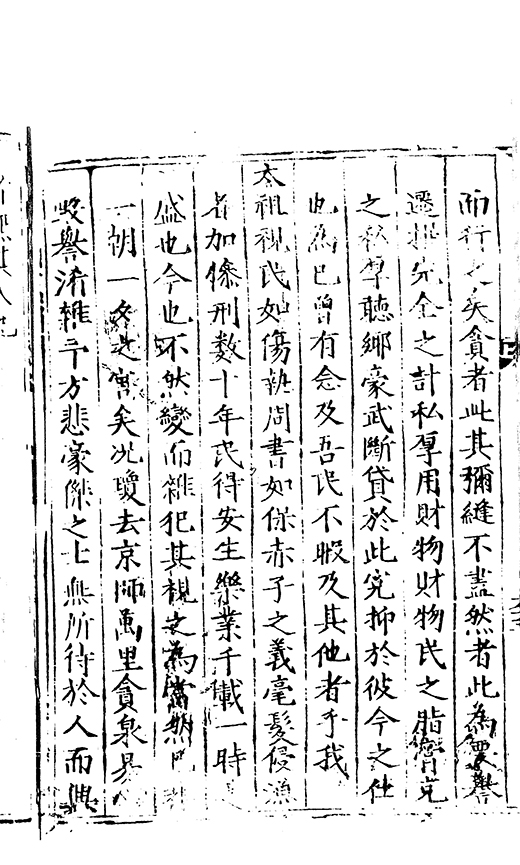 而行之矣貪者此其彌縫不盡然者此為優譽
遷挪完全之計私厚用財物財物民之脂膏克
之私厚聽鄉豪武斷貸於此冤抑於彼今之仕
也為己曾有念及吾民不暇及其他者乎我
太祖視民如傷執周書如保赤子之義毫髮侵漁
者加慘刑數十年民得安生樂業千載一時
盛也今也不然變而雜犯其視之為當然
一朝一夕之害矣况瓊去京師萬里貪泉易
毀譽淆雜千方悲豪傑之士無所待於人而興